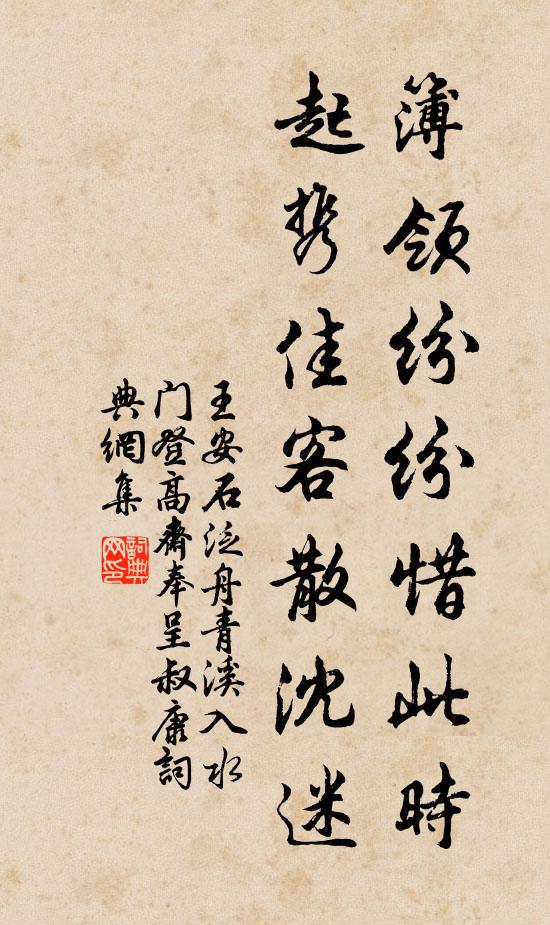 簿领纷纷惜此時
起携佳客散沈迷
王安石泛舟青溪入水
门登高齋奉呈叔康詞
典網集
詞典網印